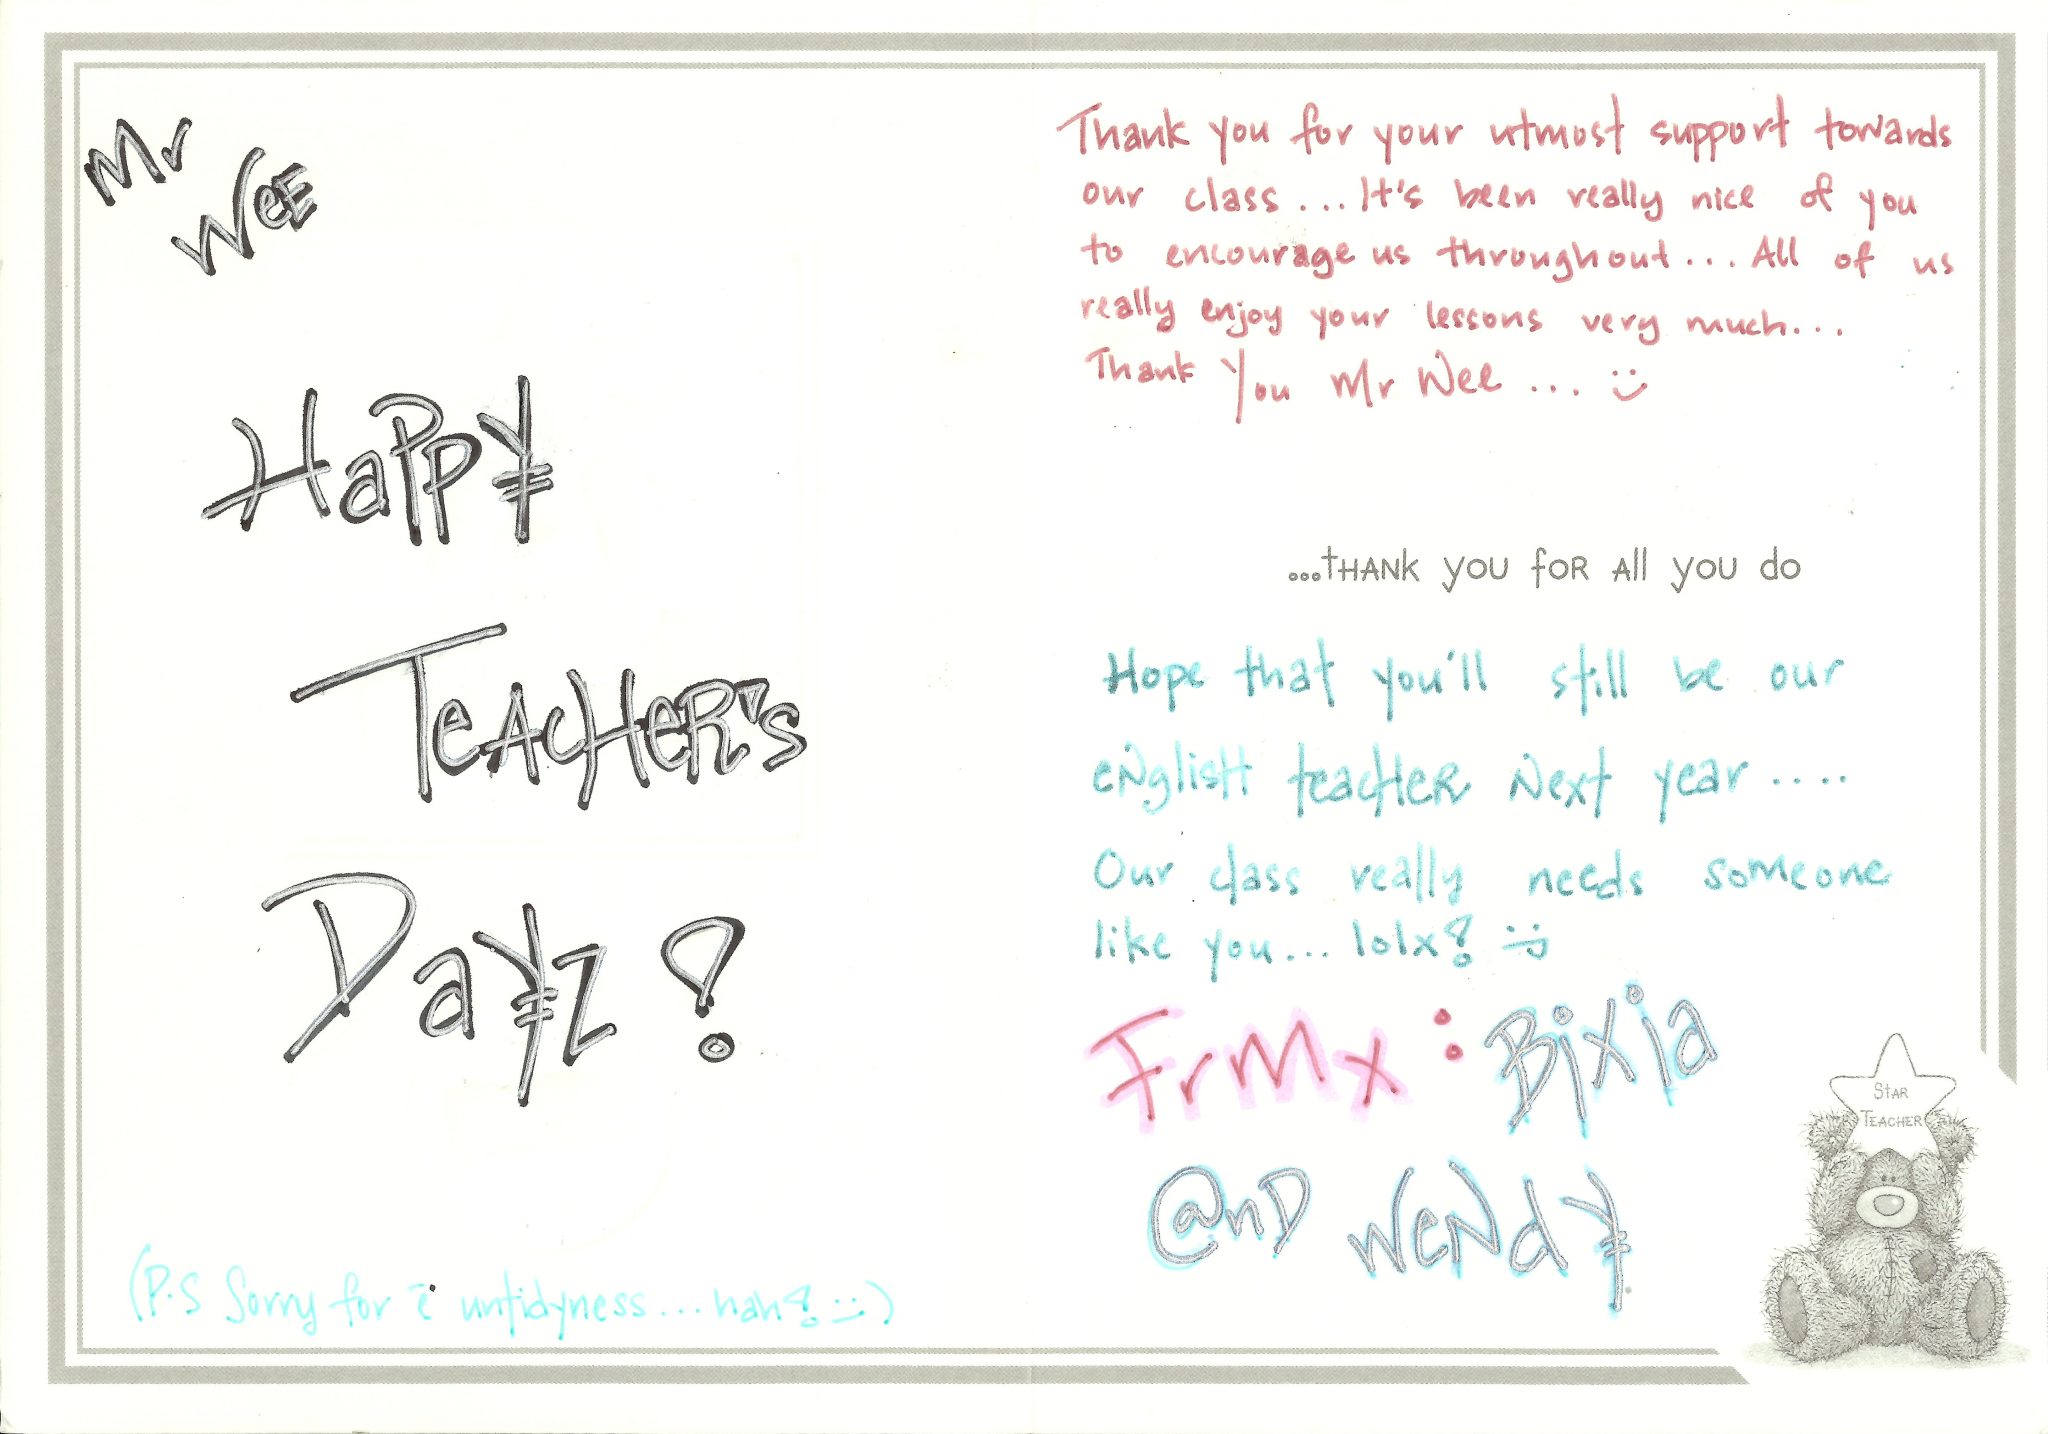 Mr
Wee
Happ¥
Teacher's
Da¥z!
(P.S Sorry for untidyness... hah! :-))
Thank you for your utmost support towards
our class... It's been really nice of you
to encourage us throughout... All of us
really enjoy your lessons very much...
Thank You Mr Wee ... :)
...THANK YOU FOR All YOU do
Hope that you'll still be our
eNglisH teacHeR Next year ....
Our class really needs someone
like you... lolx! :-)
FrMx : Bixia
@nD WeNd¥
StAR
TEACHER